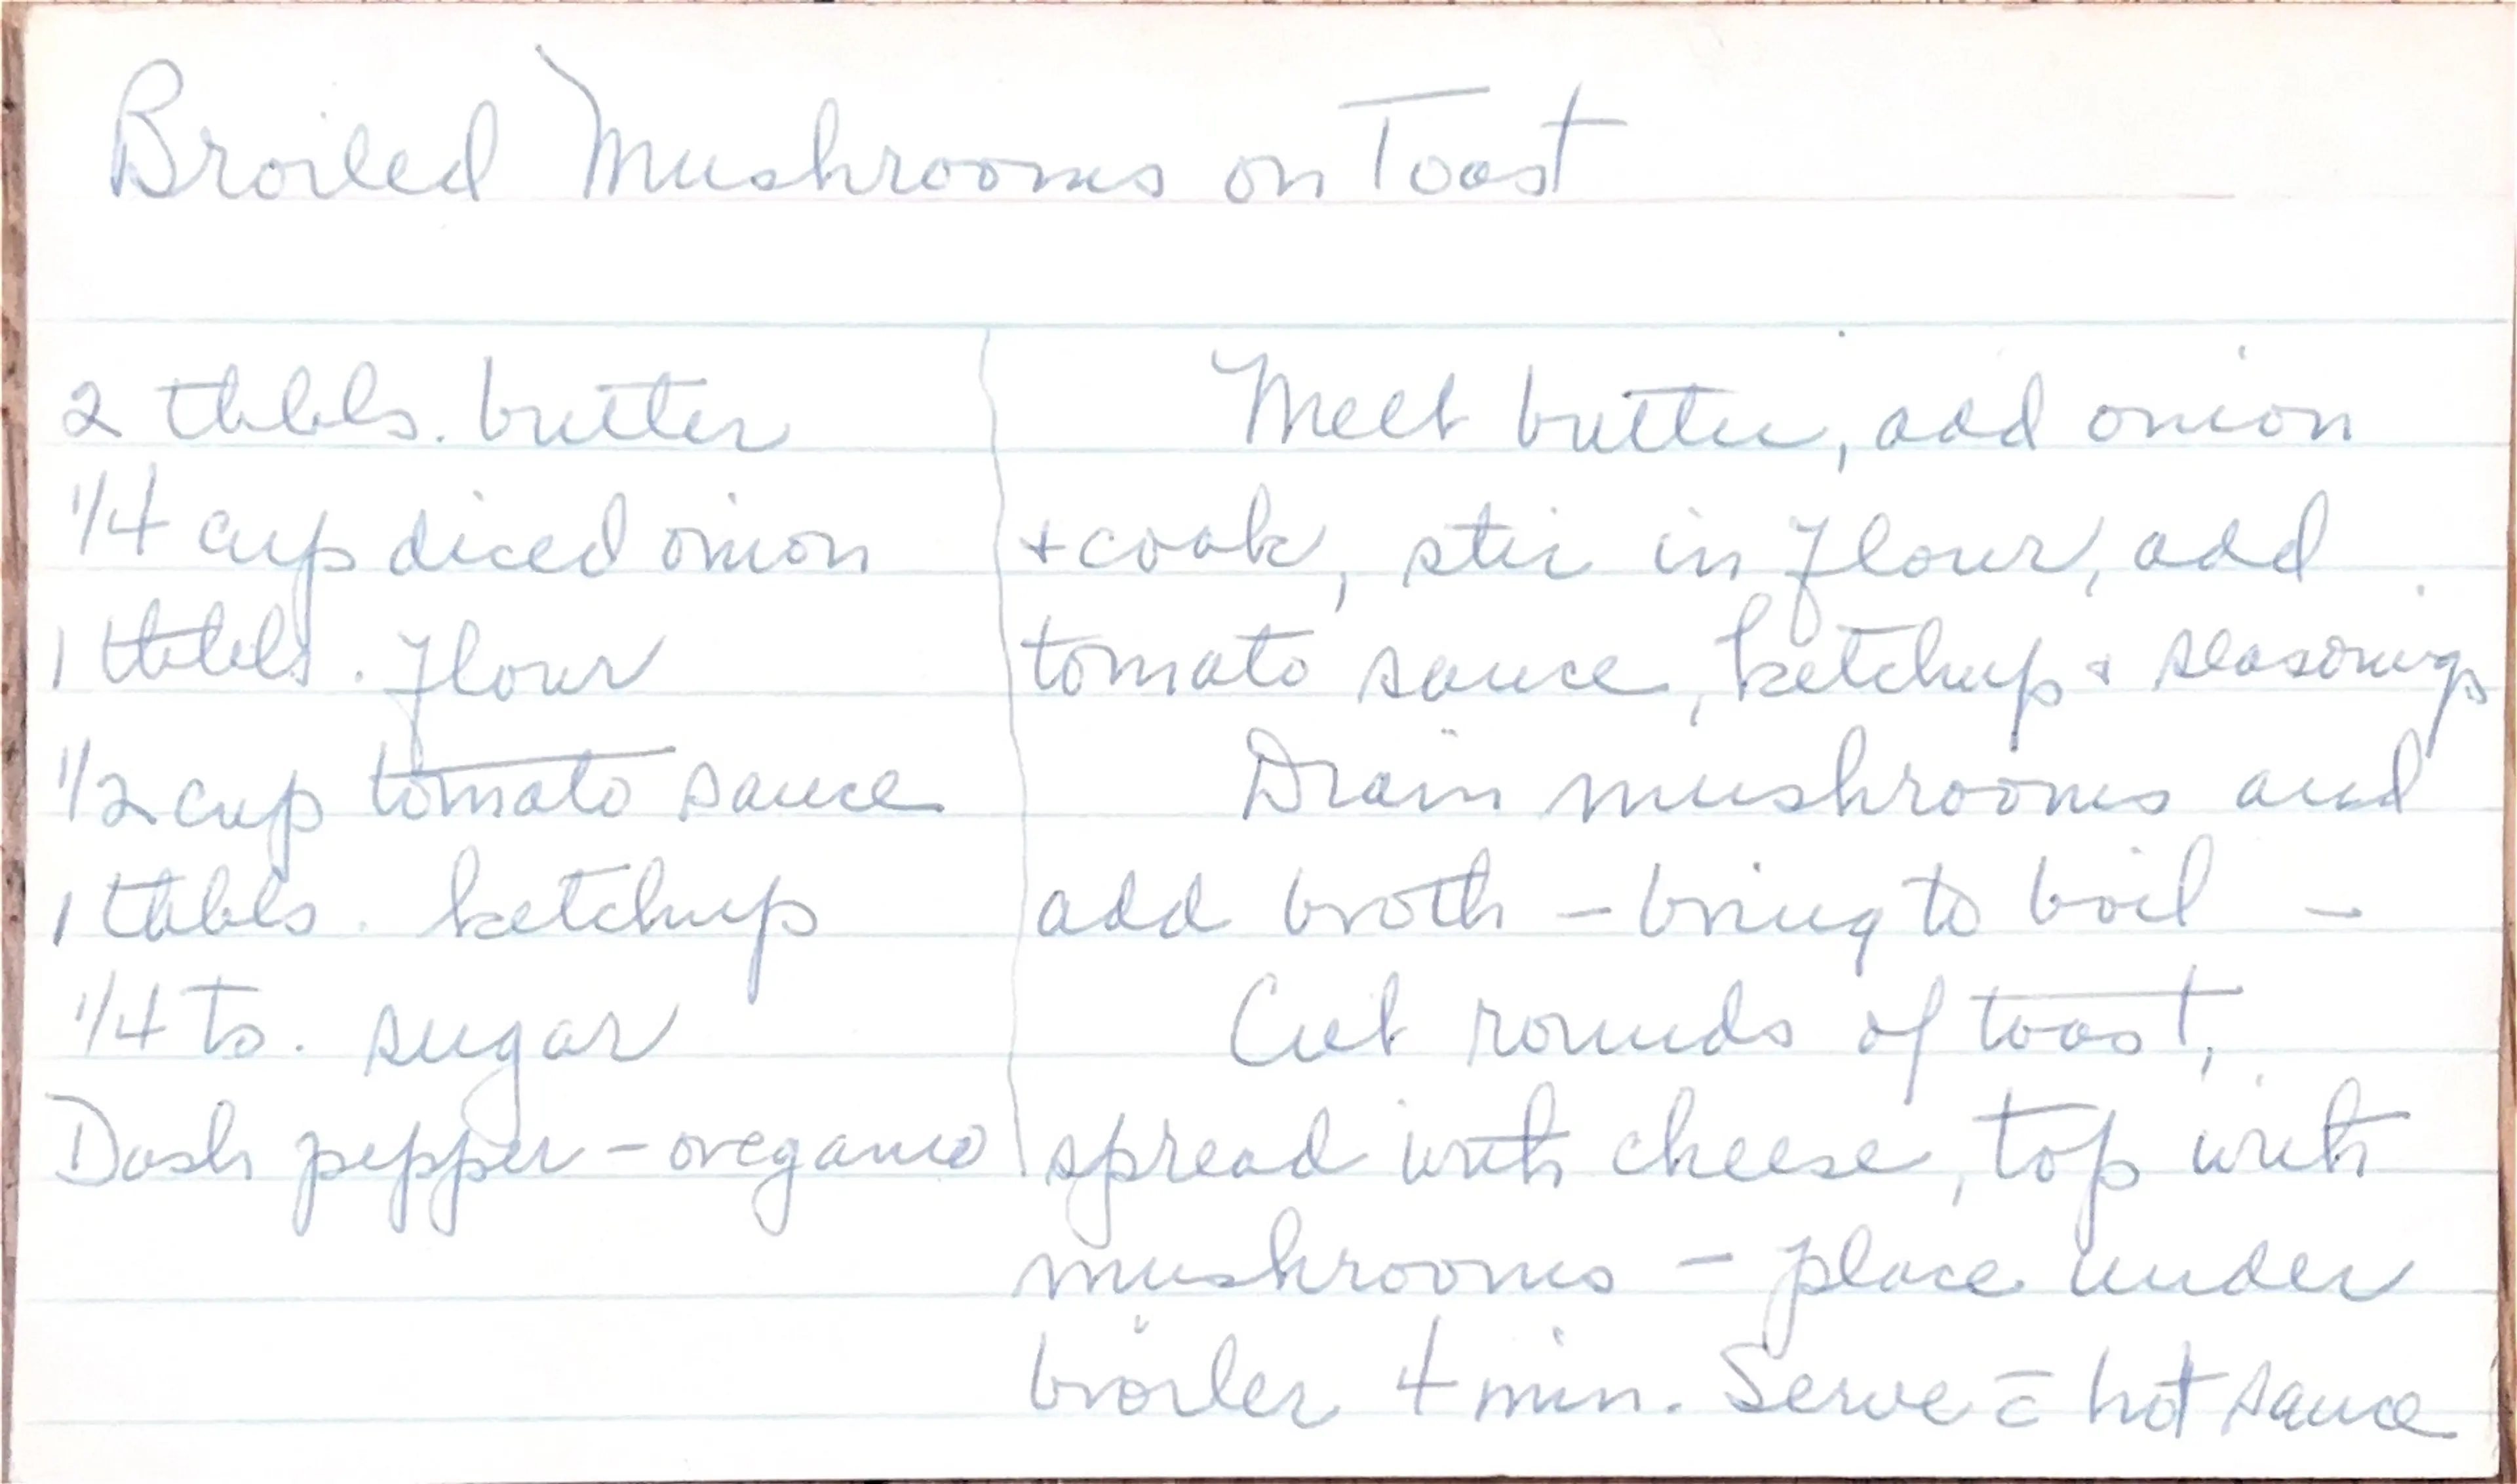 Broiled Mushrooms on Toast
2 tbls. butter
1/4 cup diced onion
1 tbls. flour
1/2 cup tomato sauce
1 tbls. ketchup
1/4 ts. sugar
Dash pepper - oregano
Melt butter, add onion
+ cook, stir in flour, add
tomato sauce, ketchup + seasonings
Drain mushrooms and
add broth - bring to boil -
Cut rounds of toast,
spread with cheese, top with
mushrooms - place under
broiler 4 min. Serve c̄ hot sauce